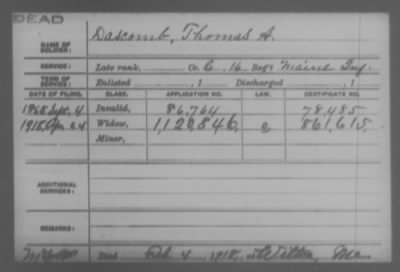 DEAD
NAME OF SOLDIER: Dascomb, Thomas A.
SERVICE: Late rank, Co. C, 16 Reg't Maine Inf.
TERM OF SERVICE: Enlisted , 1 Discharged , 1
DATE OF FILING. CLASS. APPLICATION NO. LAW. CERTIFICATE NO.
1865 Sept. 4 Invalid, 86,764 78,485
1918 Apr 25 Widow, 1,120,846 861,615
Minor,
ADDITIONAL SERVICES:
REMARKS:
Died Feb. 4, 1918, at Wilton, Me